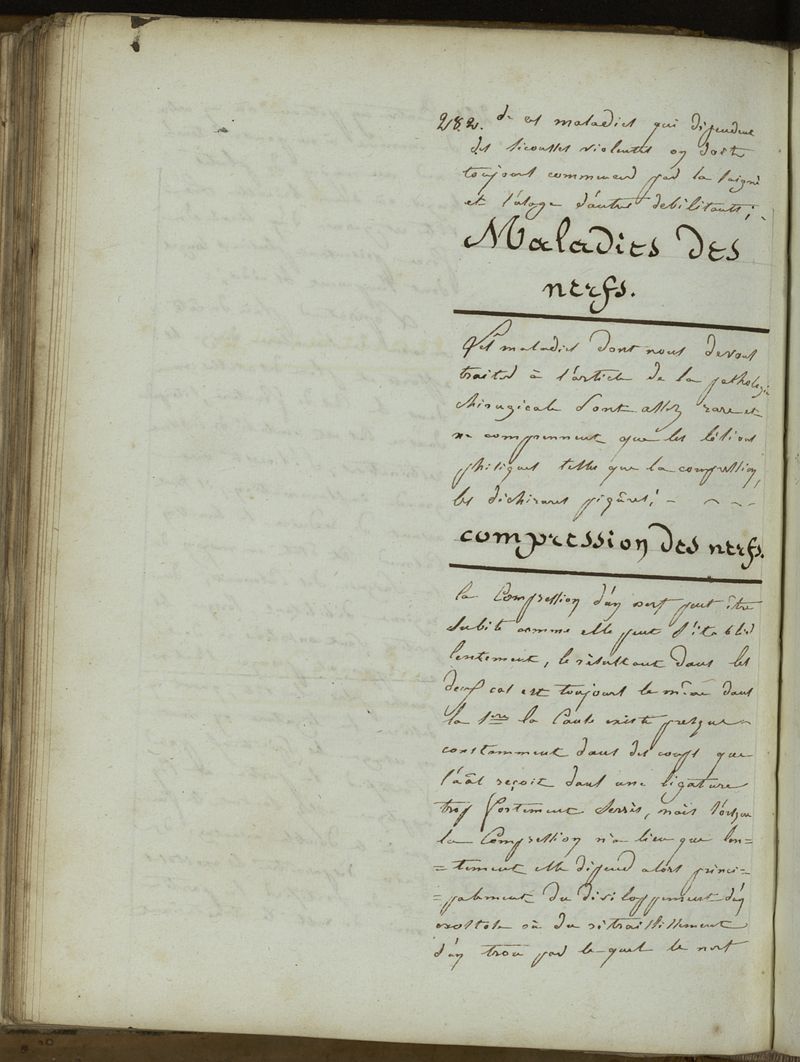 282. de ces maladies qui dépendent
des sécousses violentes on doit
toujours commencer par la saigné
et l'usage d'autres debilitants;
Maladies des
nerfs.
Les maladies dont nous devons
traiter à l'article de la pathologie
chirugicale sont assez rare et
ne comprennent que les lésions
phisiques telles que la compression,
les déchirures piqûres;
compression des nerfs.
la Compression d'un nerf peut être
subite comme elle peut s'établir
lentement, le résultant dans les
deux cas est toujours le même dans
la 1ere la Cause existe presque
constamment dans des coups que
l'on reçoit dans une ligature
trop fortement serrés, mais lorsque
la Compression n'a lieu que len=
=tement elle dépend alors princi=
=palement du développement d'un
exostose où du rétraississement
d'un trou par le quel le nerf